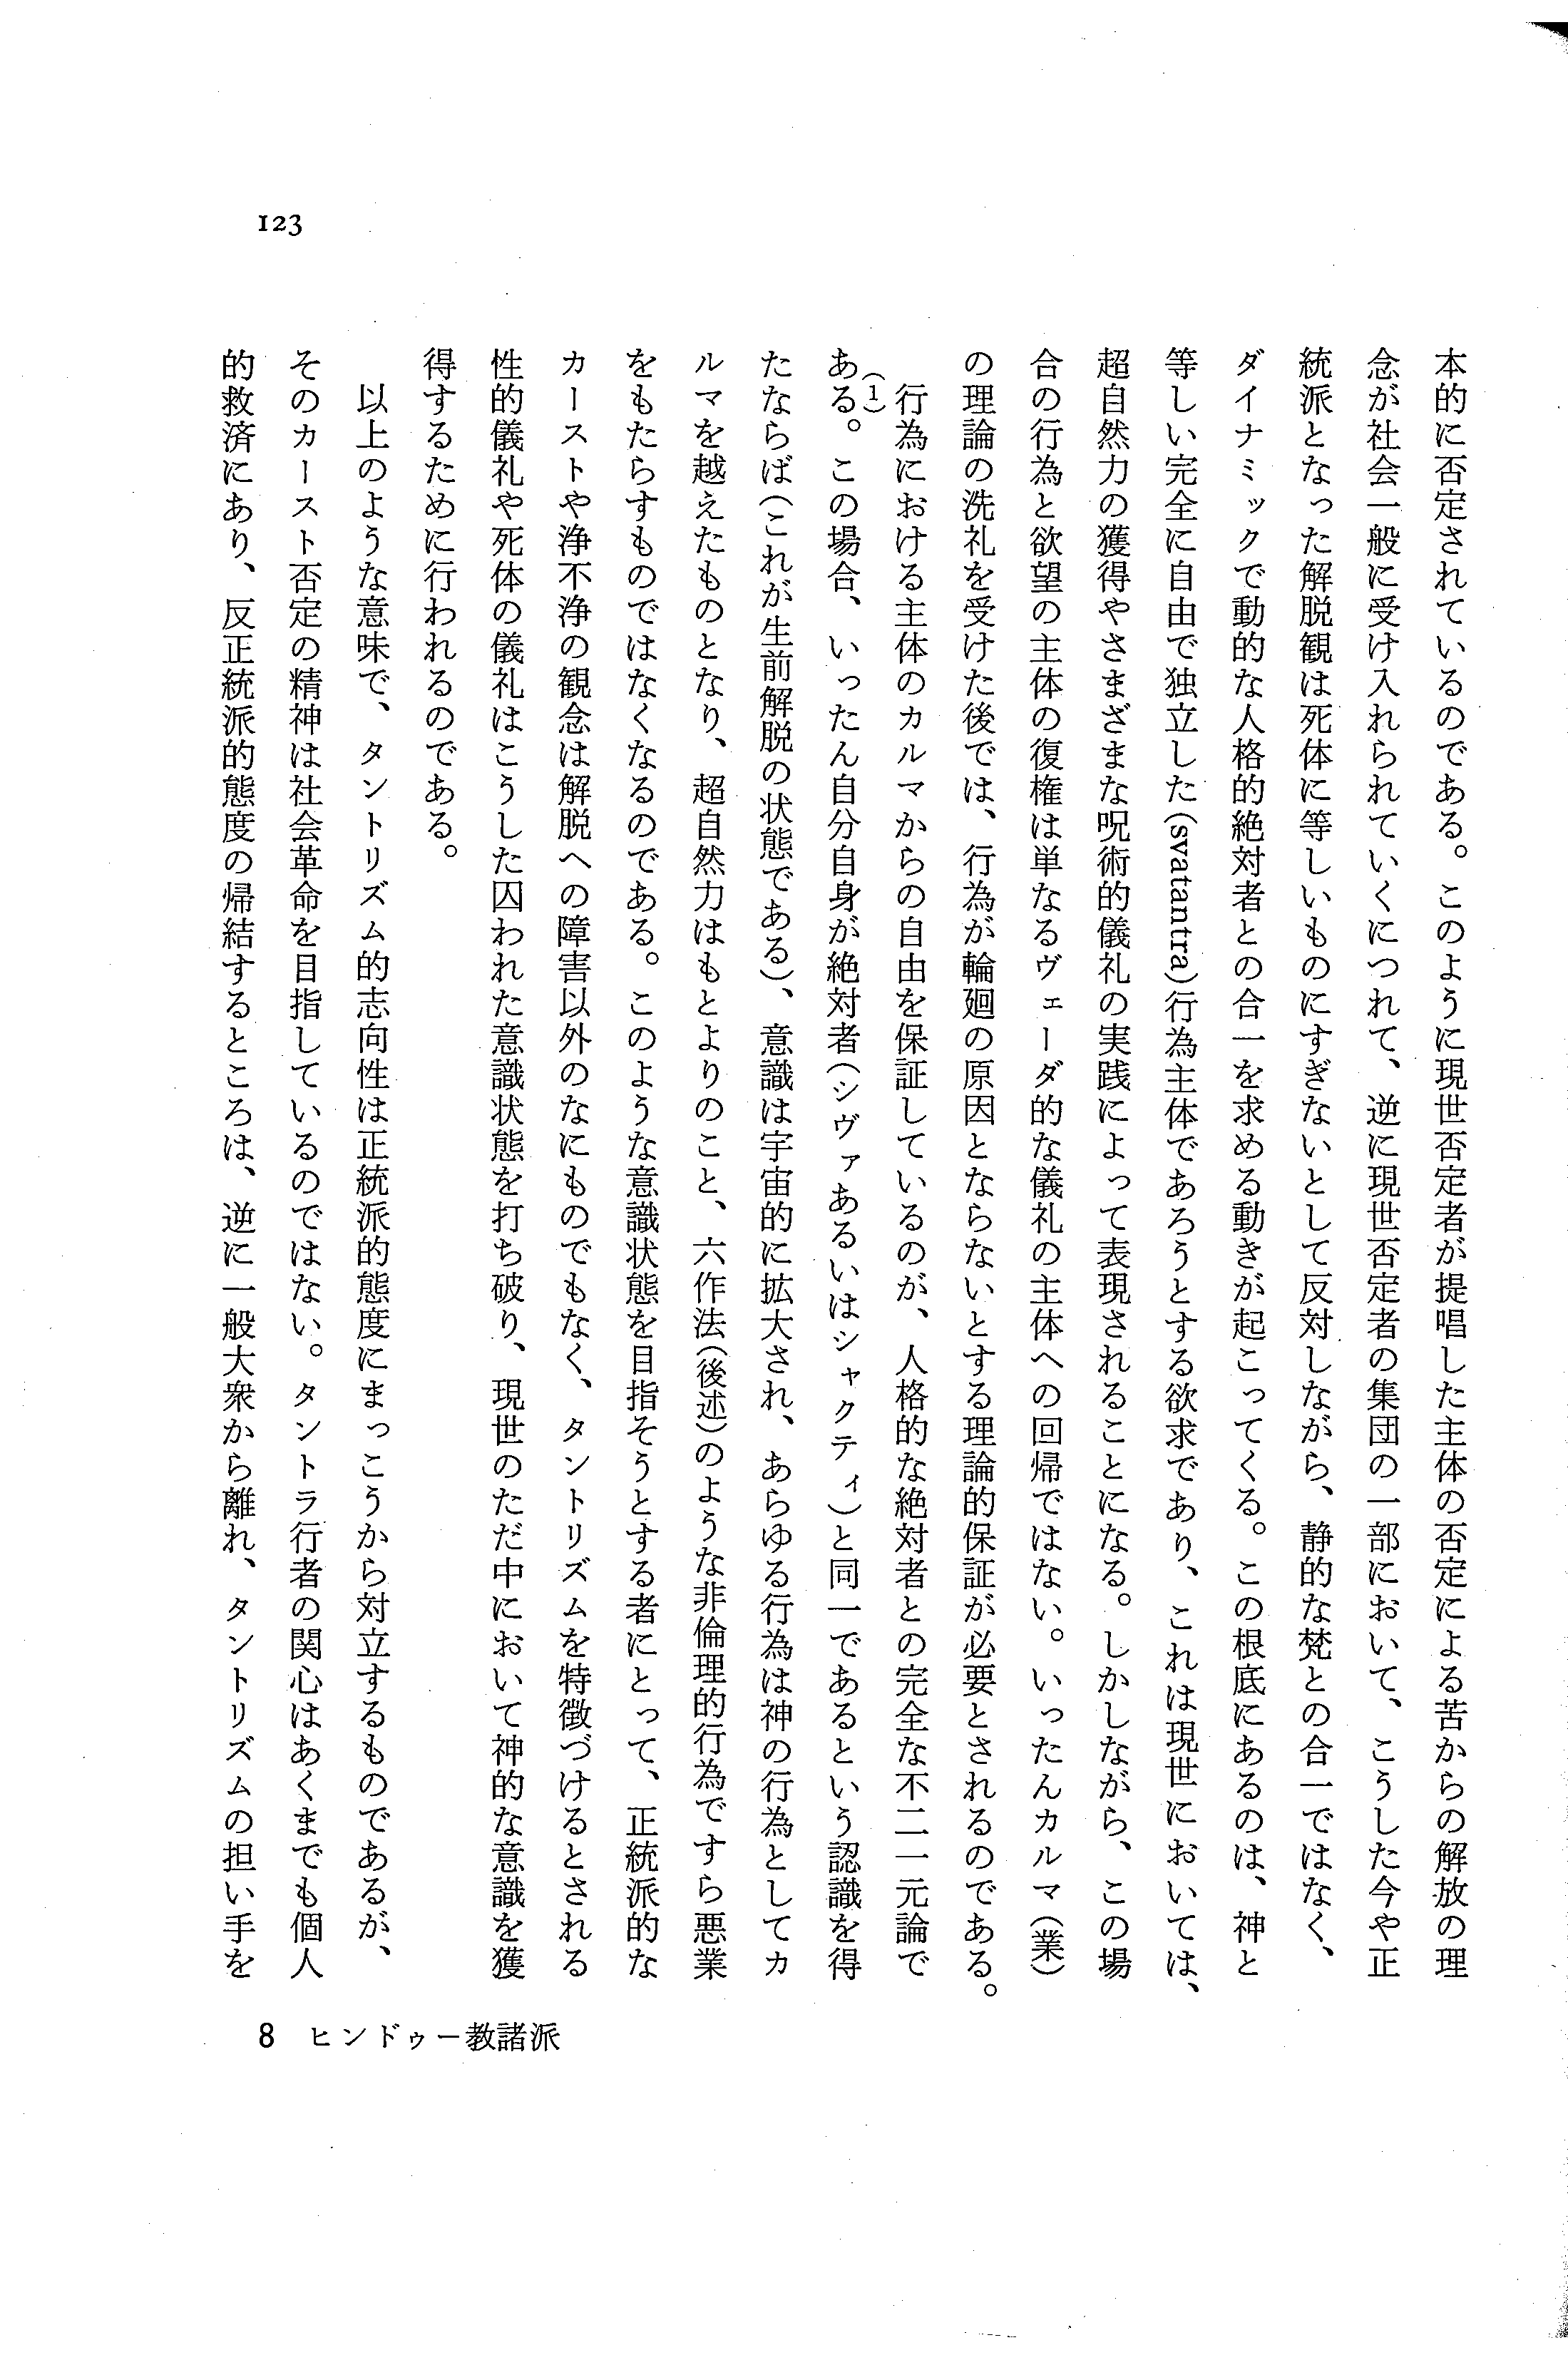 本的に否定されているのである。このように現世否定者が提唱した主体の否定による苦からの解放の理
念が社会一般に受け入れられていくにつれて、逆に現世否定者の集団の一部において、こうした今や正
統派となった解脱観は死体に等しいものにすぎないとして反対しながら、静的な梵との合一ではなく、
ダイナミックで動的な人格的絶対者との合一を求める動きが起こってくる。この根底にあるのは、神と
等しい完全に自由で独立した(svatantra)行為主体であろうとする欲求であり、これは現世においては、
超自然力の獲得やさまざまな呪術的儀礼の実践によって表現されることになる。しかしながら、この場
合の行為と欲望の主体の復権は単なるヴェーダ的な儀礼の主体への回帰ではない。いったんカルマ(業)
の理論の洗礼を受けた後では、行為が輪廻の原因とならないとする理論的保証が必要とされるのである。
行為における主体のカルマからの自由を保証しているのが、人格的な絶対者との完全な不二一元論で
ある(1)。この場合、いったん自分自身が絶対者(シヴァあるいはシャクティ)と同一であるという認識を得
たならば(これが生前解脱の状態である)、意識は宇宙的に拡大され、あらゆる行為は神の行為としてカ
ルマを越えたものとなり、超自然力はもとよりのこと、六作法(後述)のような非倫理的行為ですら悪業
をもたらすものではなくなるのである。このような意識状態を目指そうとする者にとって、正統派的な
カーストや浄不浄の観念は解脱への障害以外のなにものでもなく、タントリズムを特徴づけるとされる
性的儀礼や死体の儀礼はこうした囚われた意識状態を打ち破り、現世のただ中において神的な意識を獲
得するために行われるのである。
以上のような意味で、タントリズム的志向性は正統派的態度にまっこうから対立するものであるが、
そのカースト否定の精神は社会革命を目指しているのではない。タントラ行者の関心はあくまでも個人
的救済にあり、反正統派的態度の帰結するところは、逆に一般大衆から離れ、タントリズムの担い手を
123
8 ヒンドゥー教諸派